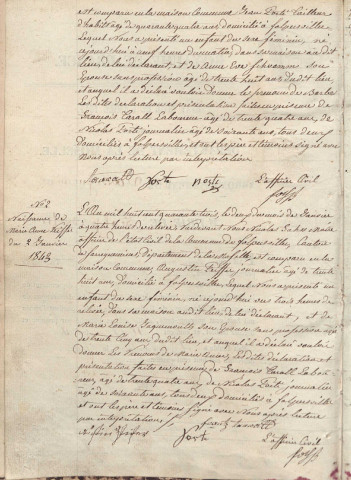 est comparu en la maison Commune Jean Porté tailleur
d'habits âgé de quarante quatre ans domicilié à folpersviller
Lequel Nous a présenté un enfant du sexe féminin, né
aujourd'hui à neuf heures du matin dans sa maison audit
lieu, de lui déclarant, et de Anne Eve Schwarz son
Epouse sans profession âgée de trente huit ans dudit lieu,
et auquel il a déclaré vouloir Donner le prénom de Barbe
Les dites déclaration et présentation faites en présence de
François Carall Laboureur, âgé de trente quatre ans, de
Nicolas Porté journalier âgé de soixante ans, tous deux
Domiciliés à folpersviller, et ont les père et témoins Signé avec
Nous après lecture par interprétation.
Porté Porté L'officier Civil
N.° 2
Naissance de
Marie Anne
du 2 Janvier
1843
L'An mil huit cent quarante trois, le deux du mois de Janvier
à quatre heures de relevée Pardevant Nous Nicolas
officier de l'état civil de la Commune de folpersviller, Canton
de Sarreguemines, Département de la Moselle, est comparu en la
maison commune, Augustin journalier âgé de trente
huit ans, Domicilié à folpersviller, Lequel Nous a présenté un
enfant du sexe féminin, né aujourd'hui vers trois heures de
relevée, dans sa maison audit lieu, de lui déclarant, et de
Marie Louise son Epouse sans profession âgée
de trente cinq ans, dudit lieu, et auquel il a déclaré vouloir
donner Les Prénoms de Marie Anne, Les dites déclaration et
présentation faites en présence de François Carall Labou-
reur, âgé de trente quatre ans, de Nicolas Porté journalier
âgé de soixante ans, tous deux domiciliés à folpersviller
et ont les père et témoins Signé avec Nous après lecture
par interprétation
Porté L'officier Civil